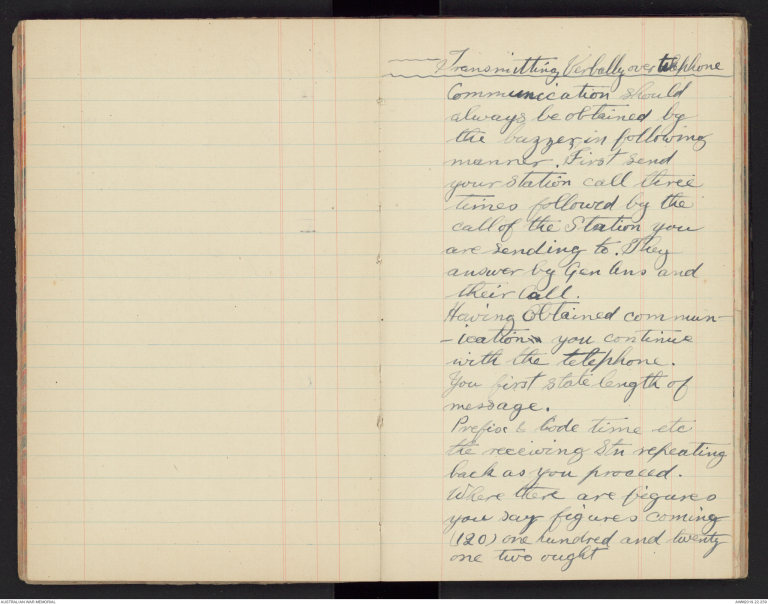 Transmitting Verbally over telephone
Communication should
always be obtained by
the buzzer in following
manner. First send
your station call three
times followed by the
call of the Station you
are sending to. They
answer by Gen Ans and
their Call.
Having obtained commun-
-ication you continue
with the telephone.
You first state length of
message.
Prefix & Code time etc
the receiving Stn repeating
back as you proceed.
Where there are figures
you say figures coming
(120) one hundred and twenty
one two ought
AUSTRALIAN WAR MEMORIAL